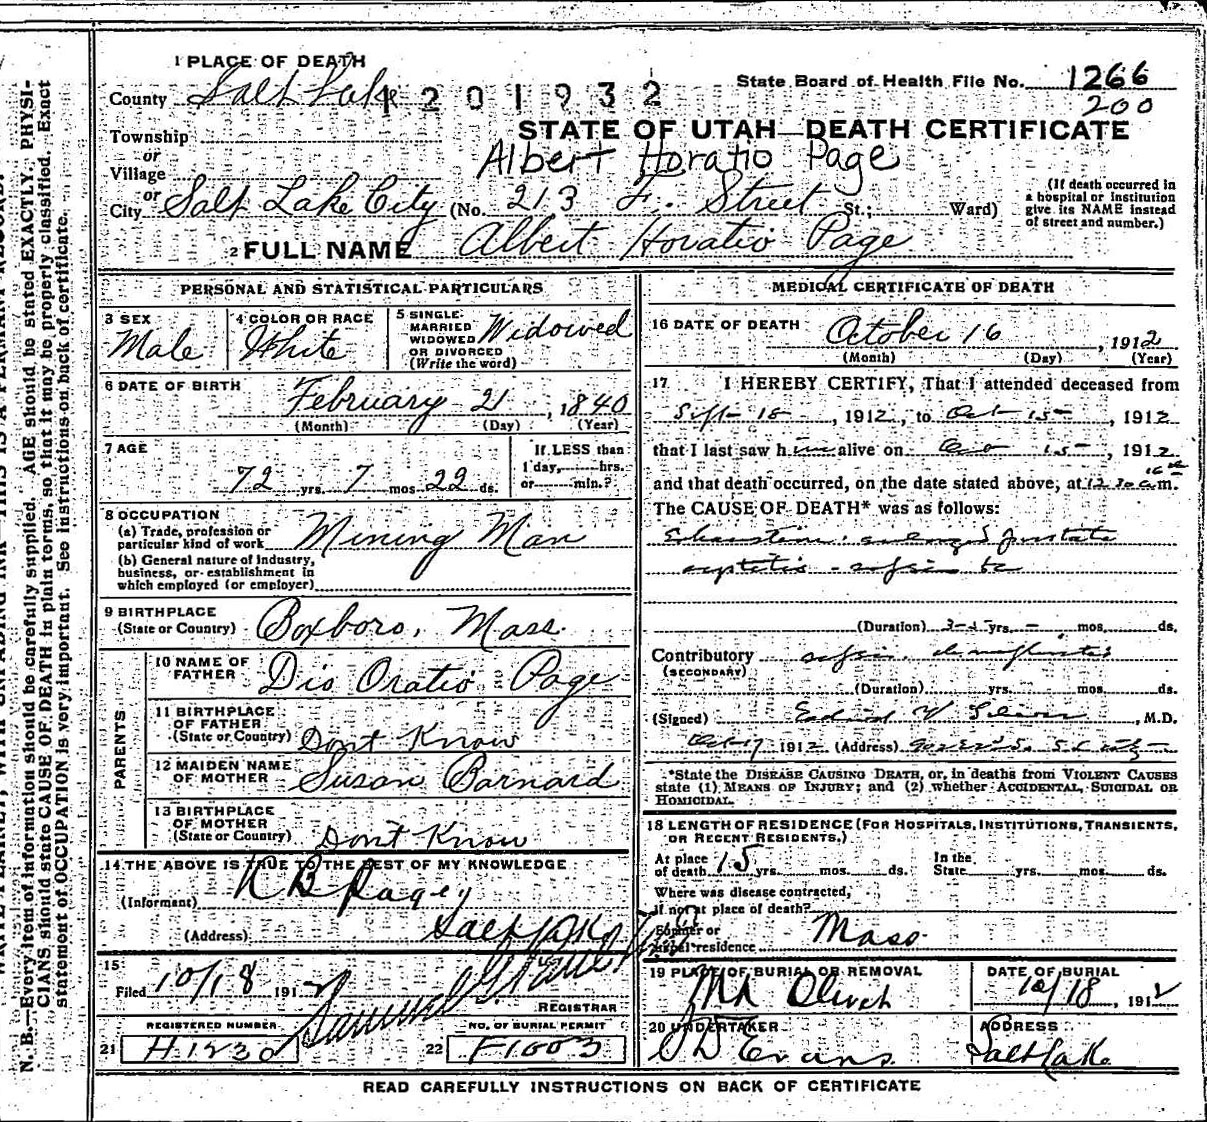 1 PLACE OF DEATH
County Salt Lake
1201932
State Board of Health File No. 1266
200
Township
or
Village
STATE OF UTAH—DEATH CERTIFICATE
Albert Horatio Page
or
City Salt Lake City (No. 213 F. Street St.; Ward)
(If death occurred in
a hospital or institution
give its NAME instead
of street and number.)
2 FULL NAME Albert Horatio Page
PERSONAL AND STATISTICAL PARTICULARS
3 SEX
Male
4 COLOR OR RACE
White
5 SINGLE
MARRIED
WIDOWED
OR DIVORCED
(Write the word)
Widowed
6 DATE OF BIRTH
February 21, 1840
(Month) (Day) (Year)
7 AGE
72 yrs. 7 mos. 22 ds.
If LESS than
1 day, hrs.
or min.?
8 OCCUPATION
(a) Trade, profession or
particular kind of work Mining Man
(b) General nature of industry,
business, or establishment in
which employed (or employer)
9 BIRTHPLACE
(State or Country) Boxboro, Mass.
PARENTS
10 NAME OF
FATHER Dio Oratio Page
11 BIRTHPLACE
OF FATHER
(State or Country) Dont Know
12 MAIDEN NAME
OF MOTHER Susan Barnard
13 BIRTHPLACE
OF MOTHER
(State or Country) Don't Know
14 THE ABOVE IS TRUE TO THE BEST OF MY KNOWLEDGE
(Informant) Page
(Address) Salt Lake
15
Filed 10/18 1912
Samuel
REGISTRAR
REGISTERED NUMBER
21 H1230
NO. OF BURIAL PERMIT
22 F1603
MEDICAL CERTIFICATE OF DEATH
16 DATE OF DEATH
October 16, 1912
(Month) (Day) (Year)
17 I HEREBY CERTIFY, That I attended deceased from
Sept 18, 1912, to Oct 15, 1912
that I last saw him alive on Oct 15, 1912
16th
and that death occurred, on the date stated above, at 12 30 a.m.
The CAUSE OF DEATH* was as follows:
Exhaustion: enlarged prostate
(Duration) yrs. mos. ds.
Contributory
(SECONDARY)
(Duration) yrs. mos. ds.
(Signed) M.D.
Oct 17 1912 (Address)
*State the DISEASE CAUSING DEATH, or, in deaths from VIOLENT CAUSES
state (1) MEANS OF INJURY; and (2) whether ACCIDENTAL, SUICIDAL OR
HOMICIDAL.
18 LENGTH OF RESIDENCE (FOR HOSPITALS, INSTITUTIONS, TRANSIENTS,
OR RECENT RESIDENTS.)
At place
of death 15 yrs. mos. ds.
In the
State yrs. mos. ds.
Where was disease contracted,
if not at place of death?
Former or
usual residence Mass.
19 PLACE OF BURIAL OR REMOVAL
Mt Olivet
DATE OF BURIAL
10/18, 1912
20 UNDERTAKER
Evans.
ADDRESS
Salt Lake
READ CAREFULLY INSTRUCTIONS ON BACK OF CERTIFICATE
N. B.—Every item of information should be carefully supplied. AGE should be stated EXACTLY. PHYSI-
CIANS should state CAUSE OF DEATH in plain terms, so that it may be properly classified. Exact
statement of OCCUPATION is very important. See instructions on back of certificate.